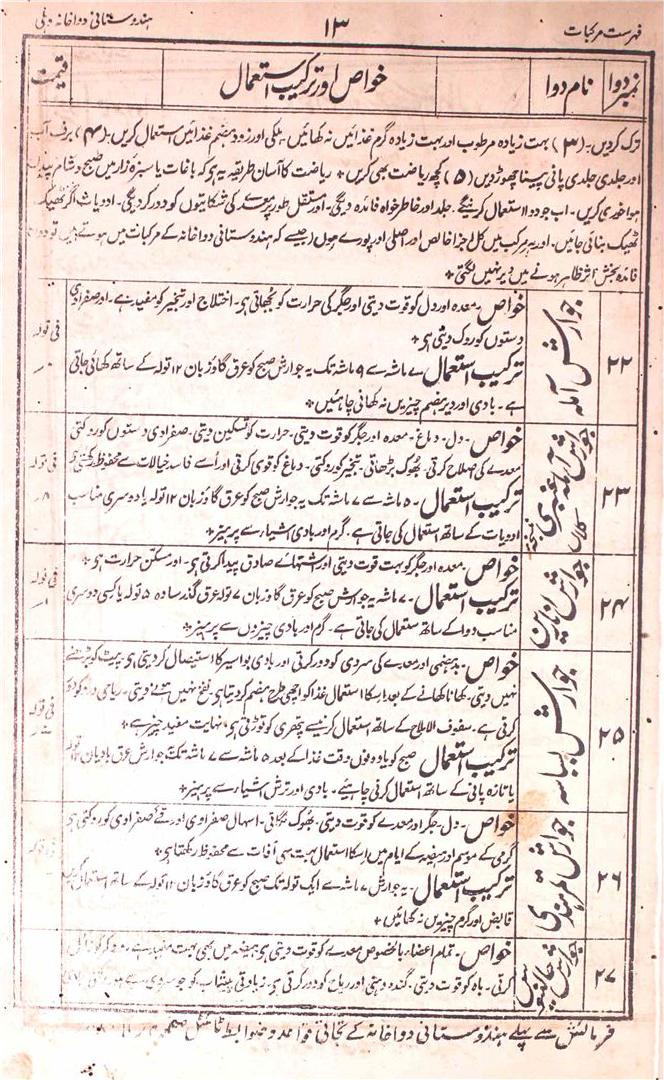 فہرست مرکبات ۱۳ ہندوستانی دواخانہ دہلی
نمبر دوا نام دوا خواص اور ترکیب استعمال قیمت
ترک کردیں۔ (۳) بہت زیادہ مرطوب اور بہت زیادہ گرم غذائیں نہ کھائیں۔ ہلکی اور زود ہضم غذائیں استعمال کریں۔ (۴) برف آب
اور جلدی جلدی پانی پینا چھوڑ دیں (۵) کچھ ریاضت بھی کریں + ریاضت کا آسان طریقہ یہ ہو کہ باغات یا سبزہ زار میں صبح و شام پیدل
ہوا خوری کریں۔ اب جو دوا استعمال کرینگے۔ جلد اور خاطر خواہ فائدہ دیگی۔ اور مستقل طور پر معدے کی شکایتوں کو دور کردیگی۔ ادویات اگر ٹھیک
ٹھیک بنائی جائیں۔ اور ہر مرکب میں کل اجزا خالص اور اصلی اور پورے ہوں (جیسے کہ ہندوستانی دواخانہ کے مرکبات میں ہوتے ہیں تو دوا کا
فائدہ بخش اثر ظاہر ہونے میں دیر نہیں لگتی +
۲۲ جوارش آملہ
خواص۔ معدہ اور دل کو قوت دیتی اور جگر کی حرارت کو بجھاتی ہی۔ اختلاج اور تبخیر کو مفید ہے۔ اور صفراوی
دستوں کو روک دیتی ہی +
ترکیب استعمال ۷ ماشہ سے ۹ ماشہ تک یہ جوارش صبح کو عرق گاؤزبان ۱۲ تولہ کے ساتھ کھائی جاتی
ہے۔ بادی اور دیر ہضم چیزیں نہ کھانی چاہئیں +
فی تولہ
۲۳ جوارش آملہ عنبری کلاں
خواص۔ دل۔ دماغ۔ معدہ اور جگر کو قوت دیتی۔ حرارت کو تسکین دیتی۔ صفراوی دستوں کو روکتی
معدے کی اصلاح کرتی۔ بھوک بڑھاتی۔ تبخیر کو روکتی۔ دماغ کو قوی کرتی اور اُسے فاسد خیالات سے محفوظ رکھتی ہی
ترکیب استعمال۔ ۵ ماشہ سے ۷ ماشہ تک یہ جوارش صبح کو عرق گاؤزبان ۱۲ تولہ یا دوسری مناسب
ادویات کے ساتھ استعمال کی جاتی ہے۔ گرم اور بادی اشیاء سے پرہیز +
فی تولہ
۲۴ جوارش انارین
خواص۔ معدہ اور جگر کو بہت قوت دیتی اور اشتہائے صادق پیدا کرتی ہی۔ اور مسکن حرارت ہی +
ترکیب استعمال۔ ۷ ماشہ یہ جوارش صبح کو عرق گاؤزبان ۷ تولہ عرق گذر سادہ ۵ تولہ یا کسی دوسری
مناسب دوا کے ساتھ استعمال کی جاتی ہے۔ گرم اور بادی چیزوں سے پرہیز +
فی تولہ
۲۵ جوارش بسباسہ
خواص۔ بدہضمی اور معدے کی سردی کو دور کرتی اور بادی بواسیر کا استیصال کر دیتی ہی۔ پیٹ کو بڑھنے
نہیں دیتی۔ کھانا کھانے کے بعد اسکا استعمال غذا کو اچھی طرح ہضم کر دیتا ہی۔ نفخ نہیں ہونے دیتی۔ ریاحی درد کو دور
کرتی ہے۔ سفوف الاملاح کے ساتھ استعمال کرنیسے پتھری کو توڑتی ہی۔ نہایت مفید چیز ہے +
ترکیب استعمال صبح کو یا دونوں وقت غذا کے بعد ۵ ماشہ سے ۷ ماشہ تک یہ جوارش عرق بادیان ۱۲ تولہ
یا تازہ پانی کے ساتھ استعمال کرنی چاہیئے۔ بادی اور ترش اشیاء سے پرہیز +
فی تولہ
۲۶ جوارش تمر ہندی
خواص۔ دل۔ جگر اور معدے کو قوت دیتی۔ بھوک لگاتی۔ اسہال صفراوی اور قے صفراوی کو روکتی ہی
گرمی کے موسم اور ہیضہ کے ایام میں اسکا استعمال بہت سی آفات سے محفوظ رکھتا ہی +
ترکیب استعمال۔ یہ جوارش ۷ ماشہ سے ایک تولہ تک صبح کو عرق گاؤزبان ۱۲ تولہ کے ساتھ استعمال کریں
قابض اور گرم چیزیں نہ کھائیں +
فی تولہ
۲۷ جوارش جالینوس
خواص۔ تمام اعضاء بالخصوص معدے کو قوت دیتی ہی ہیضہ میں بھی بہت مفید ہے
کرتی۔ باہ کو قوت دیتی۔ گندہ دہنی اور ریاح کو دور کرتی ہی۔ زیادتی پیشاب کو جو سردی سے ہو
فرمائش سے پہلے ہندوستانی دواخانہ کے تجارتی قواعد و ضوابط ٹائٹل صفحہ